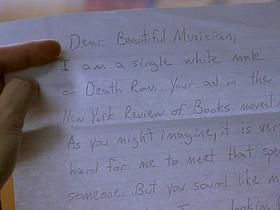 Dear Beautiful Musician,
I am a single white male
on Death Row. Your ad in the
New York Review of Books moved
As you might imagine, it is very
hard for me to meet that spe
someone. But you sound like m
I looking